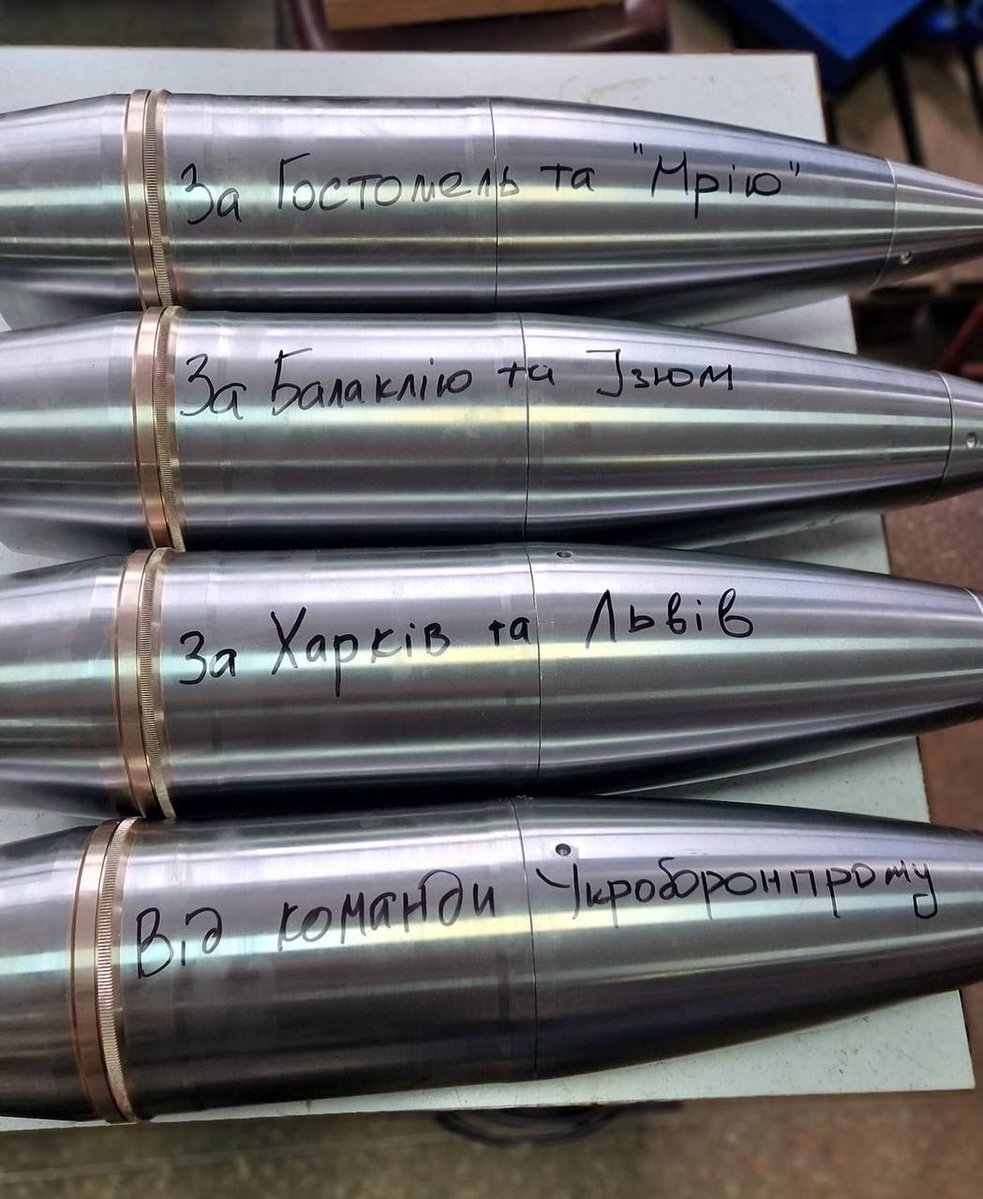 За Гостомель та "Мрію"
За Балаклію та Ізюм
За Харків та Львів
Від команди Укроборонпрому